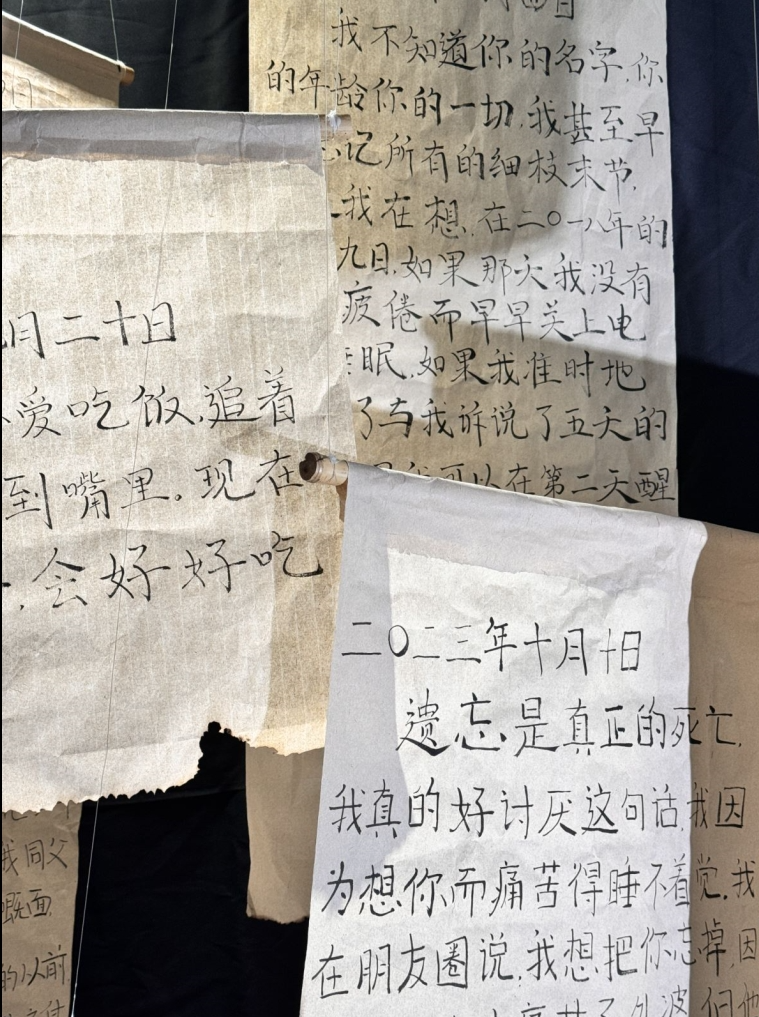 我不知道你的名字，你
的年龄你的一切，我甚至早
记所有的细枝末节，
我在想，在二〇一八年的
九日，如果那天我没有
疲倦而早早关上电
眠，如果我准时地
了与我诉说了五天的
我可以在第二天醒
月二十日
爱吃饭，追着
到嘴里。现在
，会好好吃
二〇二三年十月十日
遗忘是真正的死亡，
我真的好讨厌这句话，我因
为想你而痛苦得睡不着觉，我
在朋友圈说，我想把你忘掉，因
我同父
既面
的以前